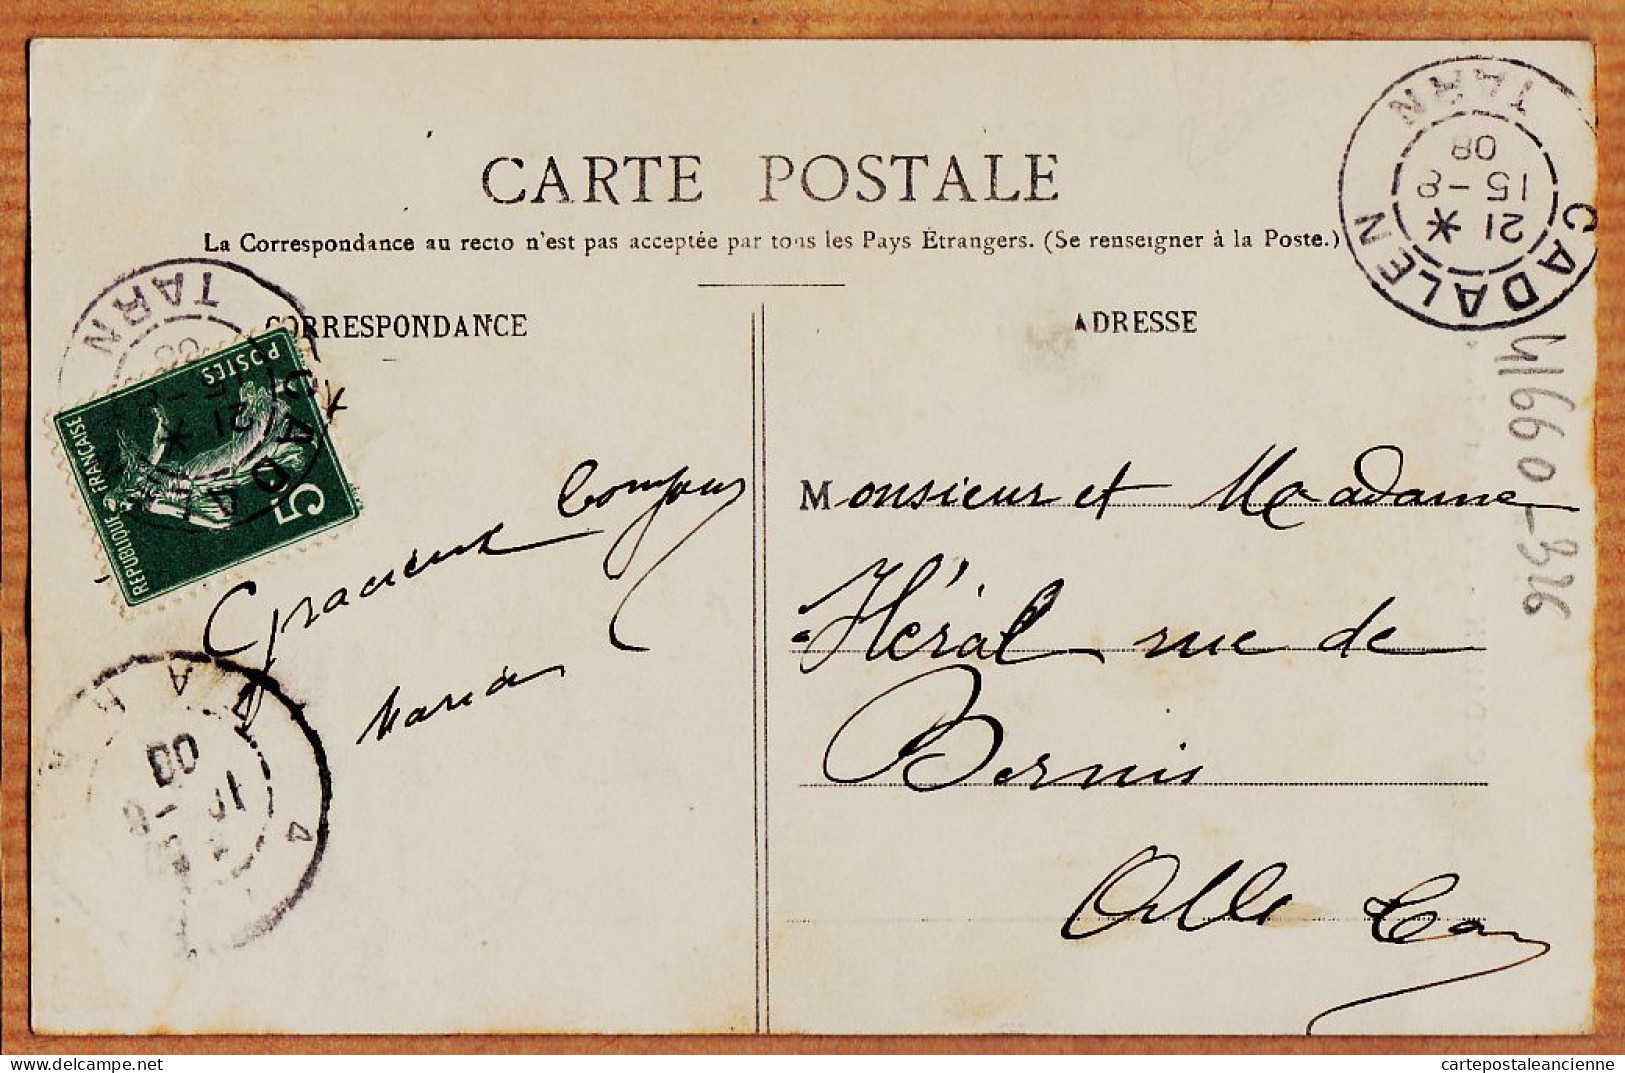 CARTE POSTALE
La Correspondance au recto n'est pas acceptée par tous les Pays Étrangers. (Se renseigner à la Poste.)
CORRESPONDANCE
ADRESSE
CADALEN
TARN
21 *
15 - 8
08
TARN
CADALEN
21 *
15 - 8
POSTES
RÉPUBLIQUE FRANÇAISE
5
Gracieux Bonjour
Maria
08
Monsieur et Madame
Héral rue de
Bernis
41660-326
cartepostaleancienne